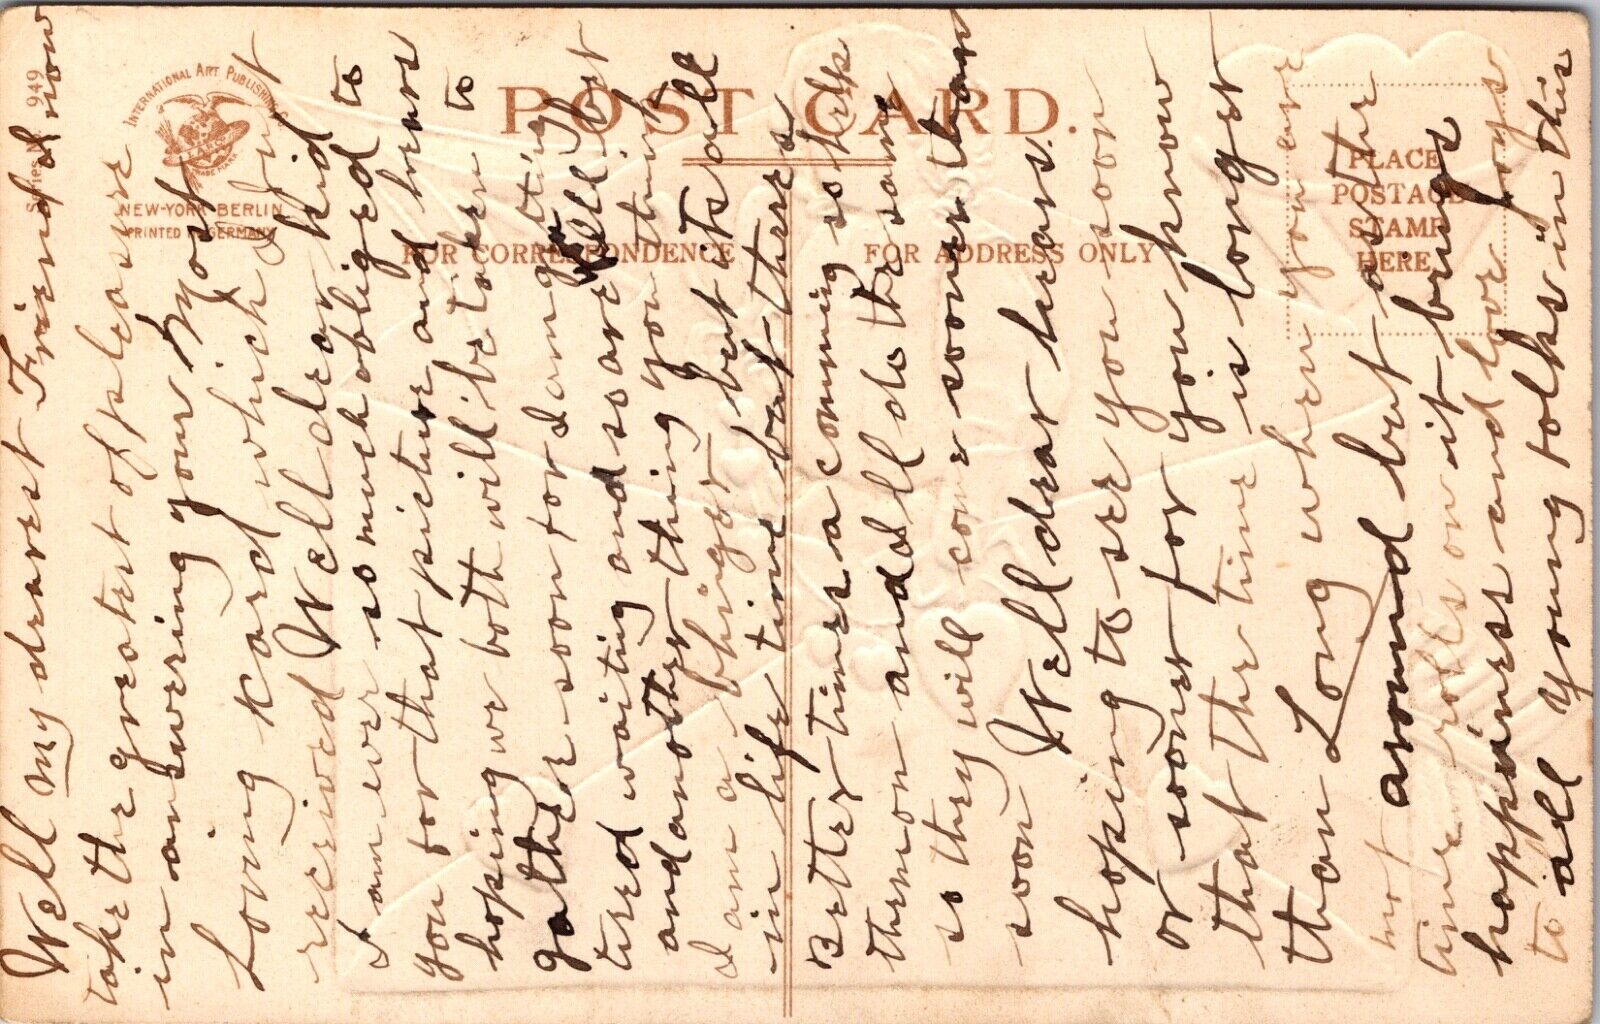 Well my dearest Friend now
take the greatest of pleasure
in answering your Most
Loving Kard which I just
received Well dear kid
I am ever so much obliged to
you for that picture and hears
hoping we both will be to
gather soon for I am getting
tired waiting and so are
and another thing you think
I am a but its all
in life time but theres
Better times a comming so help
them on and Ill do the same
so they will come sooner than
soon Well dear hears
hoping to see you soon
or sooner for you know
that the time is longer
than Long when you are
not around but as the
time rolls on it brings
happiness and love
to all young folks in this
POST CARD.
FOR CORRESPONDENCE
FOR ADDRESS ONLY
PLACE
POSTAGE
STAMP
HERE
Series 949
INTERNATIONAL ART PUBLISHING
TRADE MARK
NEW-YORK BERLIN
PRINTED IN GERMANY